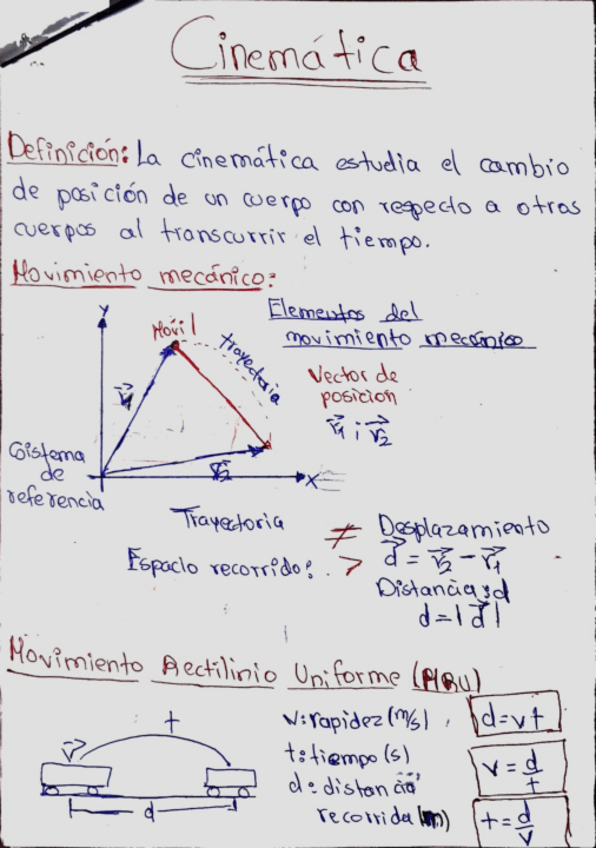 Cinemática
Definición: La cinemática estudia el cambio
de posición de un cuerpo con respecto a otros
cuerpos al transcurrir el tiempo.
Movimiento mecánico:
Elementos del
movimiento mecánico
y
Móvil
trayectoria
Vector de
posicion
r⃗1 ; r⃗2
r⃗1
r⃗2
x
Sistema
de
referencia
Trayectoria ≠ Desplazamiento
Espacio recorrido: > d⃗ = r⃗2 - r⃗1
Distancia: d
d=|d⃗|
Movimiento Rectilinio Uniforme (MRU)
v⃗
t
d
v: rapidez (m/s)
t: tiempo (s)
d: distancia
recorrida (m)
d=vt
v = d/t
t = d/v